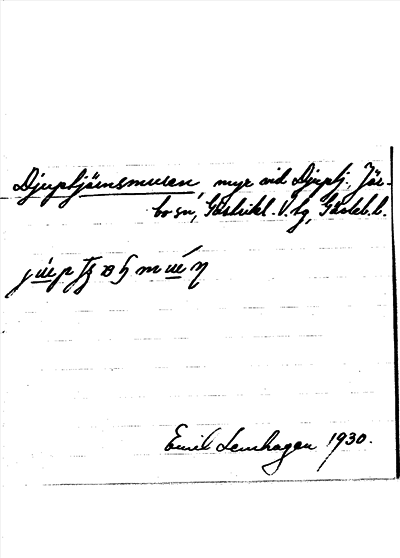 Djuptjärnsmuren, myr vid Djuptj. Jär-
bo sn, Gästrikl. V. tg, Gävleb. l.
Emil Lenhagen 1930.